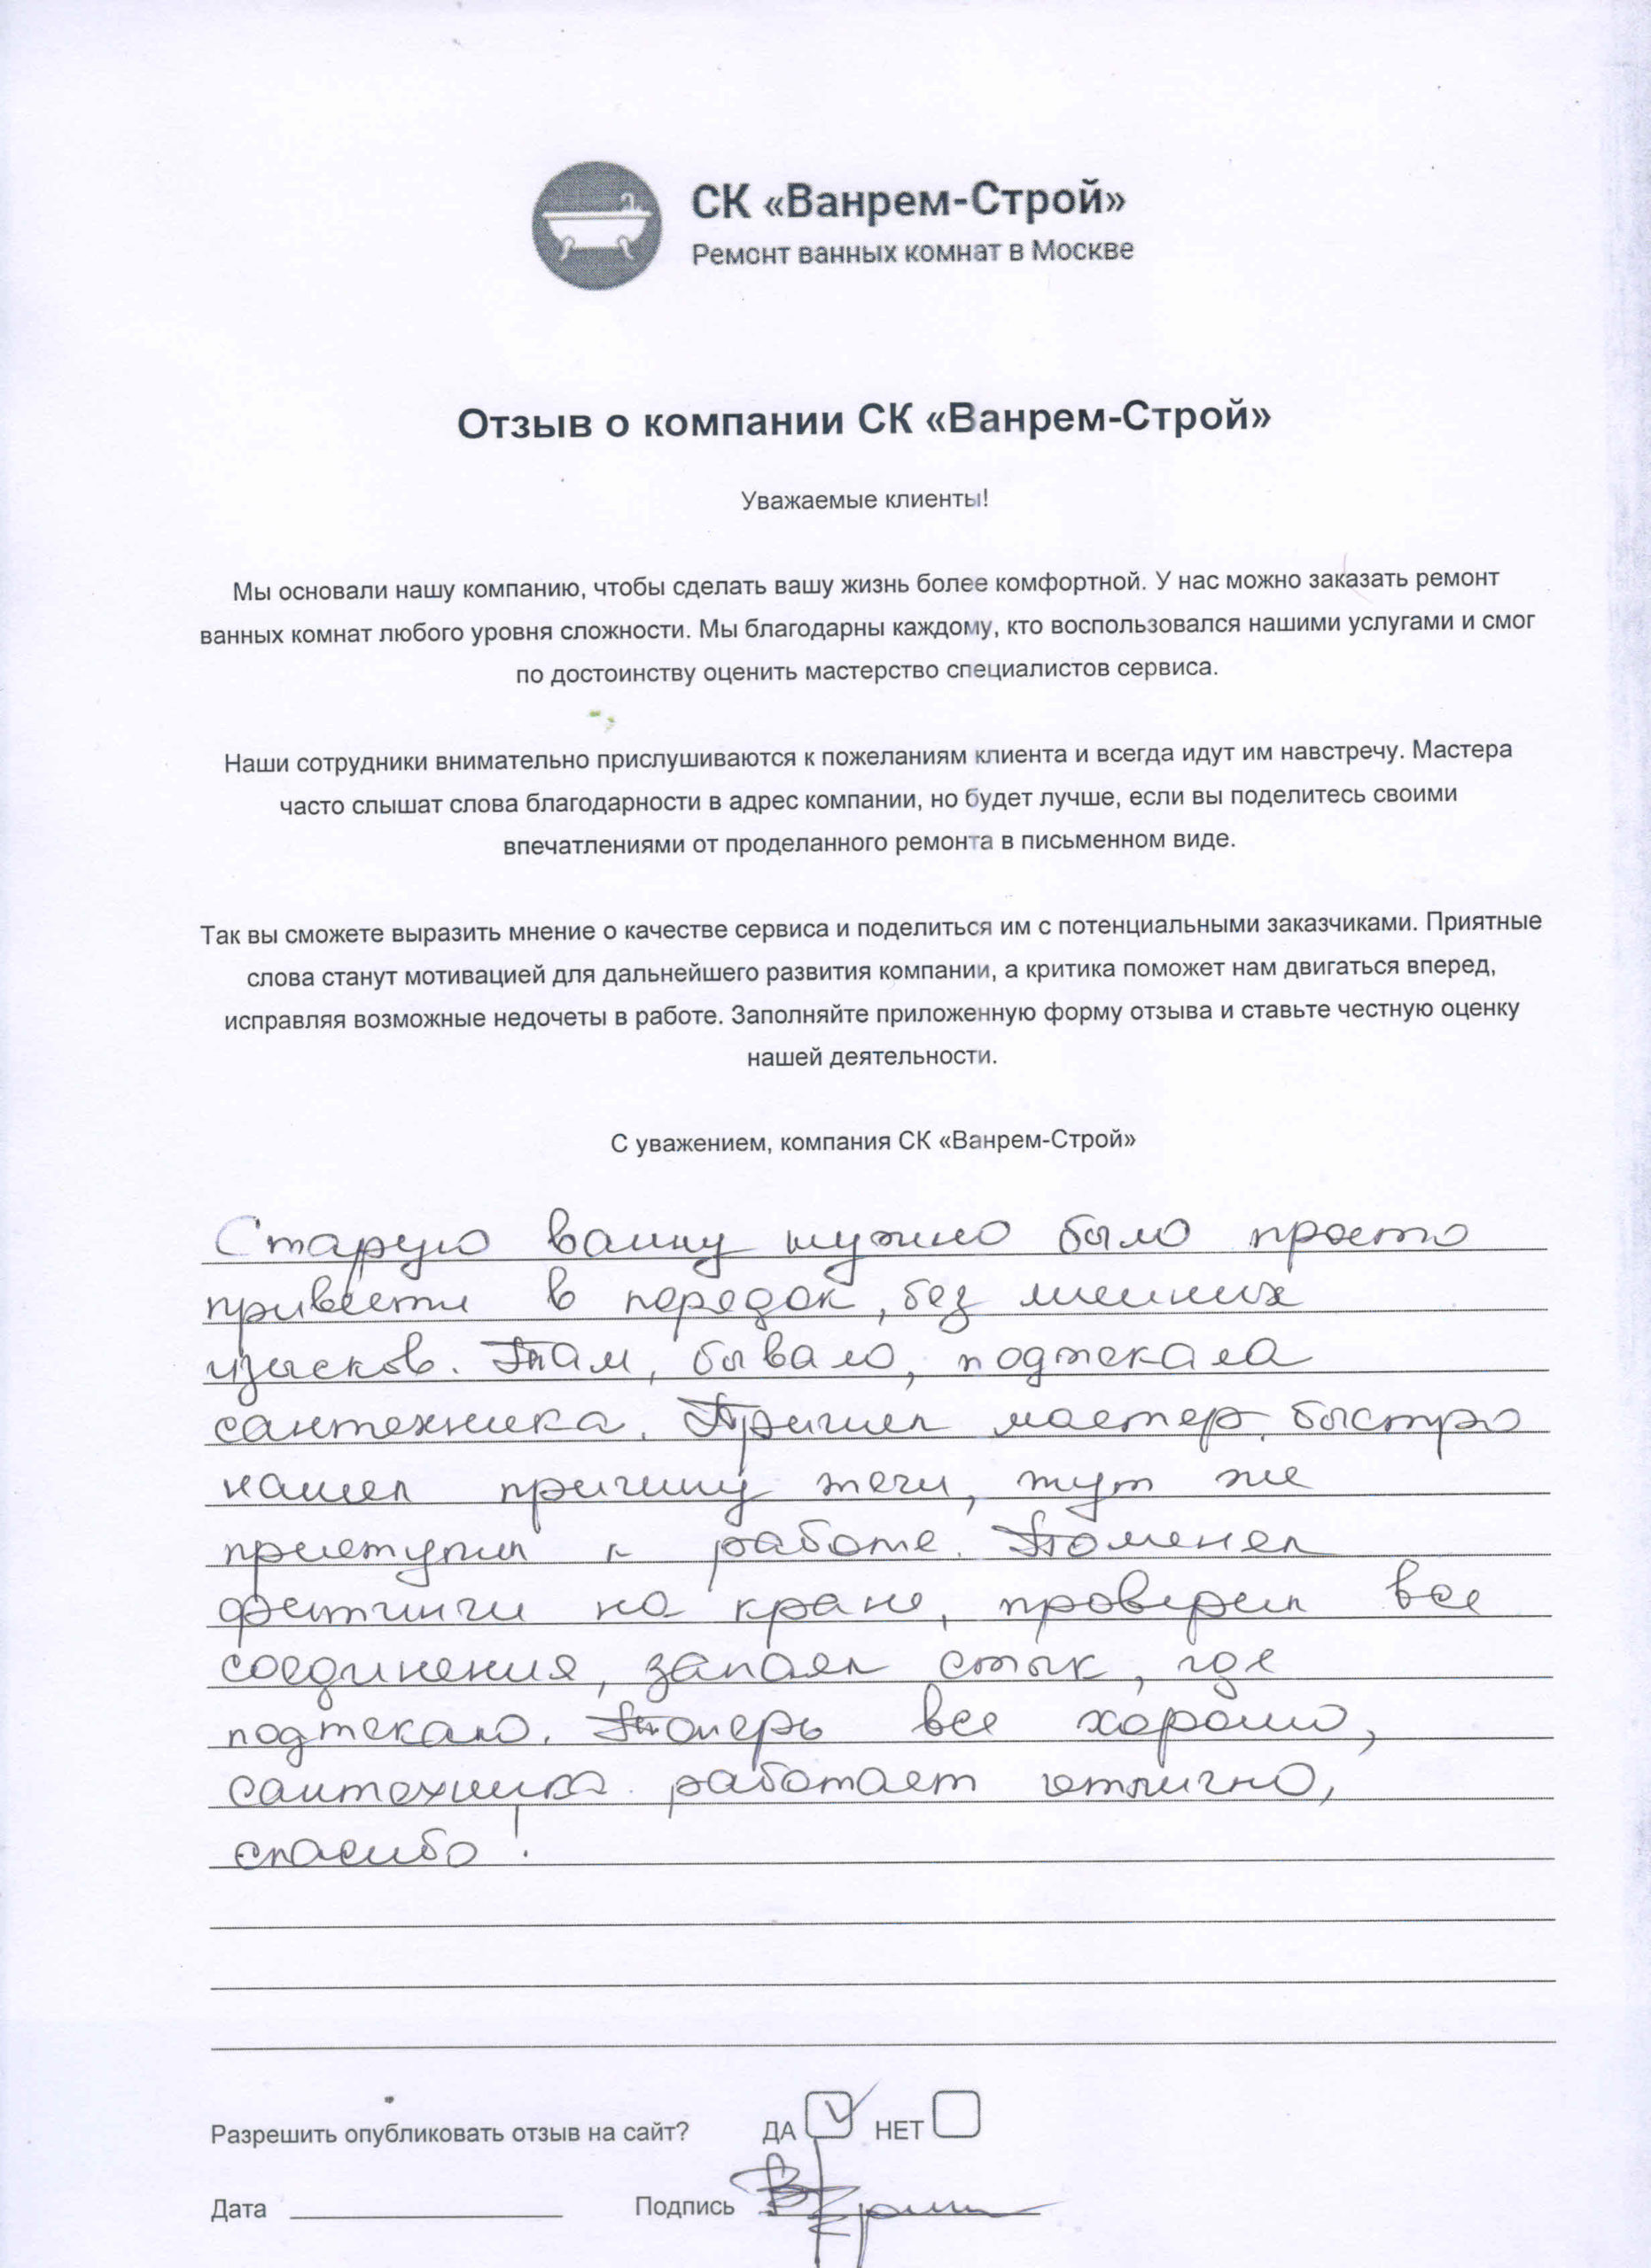 СК «Ванрем-Строй»
Ремонт ванных комнат в Москве
Отзыв о компании СК «Ванрем-Строй»
Уважаемые клиенты!
Мы основали нашу компанию, чтобы сделать вашу жизнь более комфортной. У нас можно заказать ремонт
ванных комнат любого уровня сложности. Мы благодарны каждому, кто воспользовался нашими услугами и смог
по достоинству оценить мастерство специалистов сервиса.
Наши сотрудники внимательно прислушиваются к пожеланиям клиента и всегда идут им навстречу. Мастера
часто слышат слова благодарности в адрес компании, но будет лучше, если вы поделитесь своими
впечатлениями от проделанного ремонта в письменном виде.
Так вы сможете выразить мнение о качестве сервиса и поделиться им с потенциальными заказчиками. Приятные
слова станут мотивацией для дальнейшего развития компании, а критика поможет нам двигаться вперед,
исправляя возможные недочеты в работе. Заполняйте приложенную форму отзыва и ставьте честную оценку
нашей деятельности.
С уважением, компания СК «Ванрем-Строй»
Старую ванну нужно было просто
привести в порядок, без лишних
изысков. Там, бывало, подтекала
сантехника. Пришел мастер, быстро
нашел причину течи, тут же
приступил к работе. Поменял
фитинги на кране, проверил все
соединения, запаял стык, где
подтекало. Теперь все хорошо,
сантехника работает отлично,
спасибо!
Разрешить опубликовать отзыв на сайт? ДА НЕТ
Дата Подпись